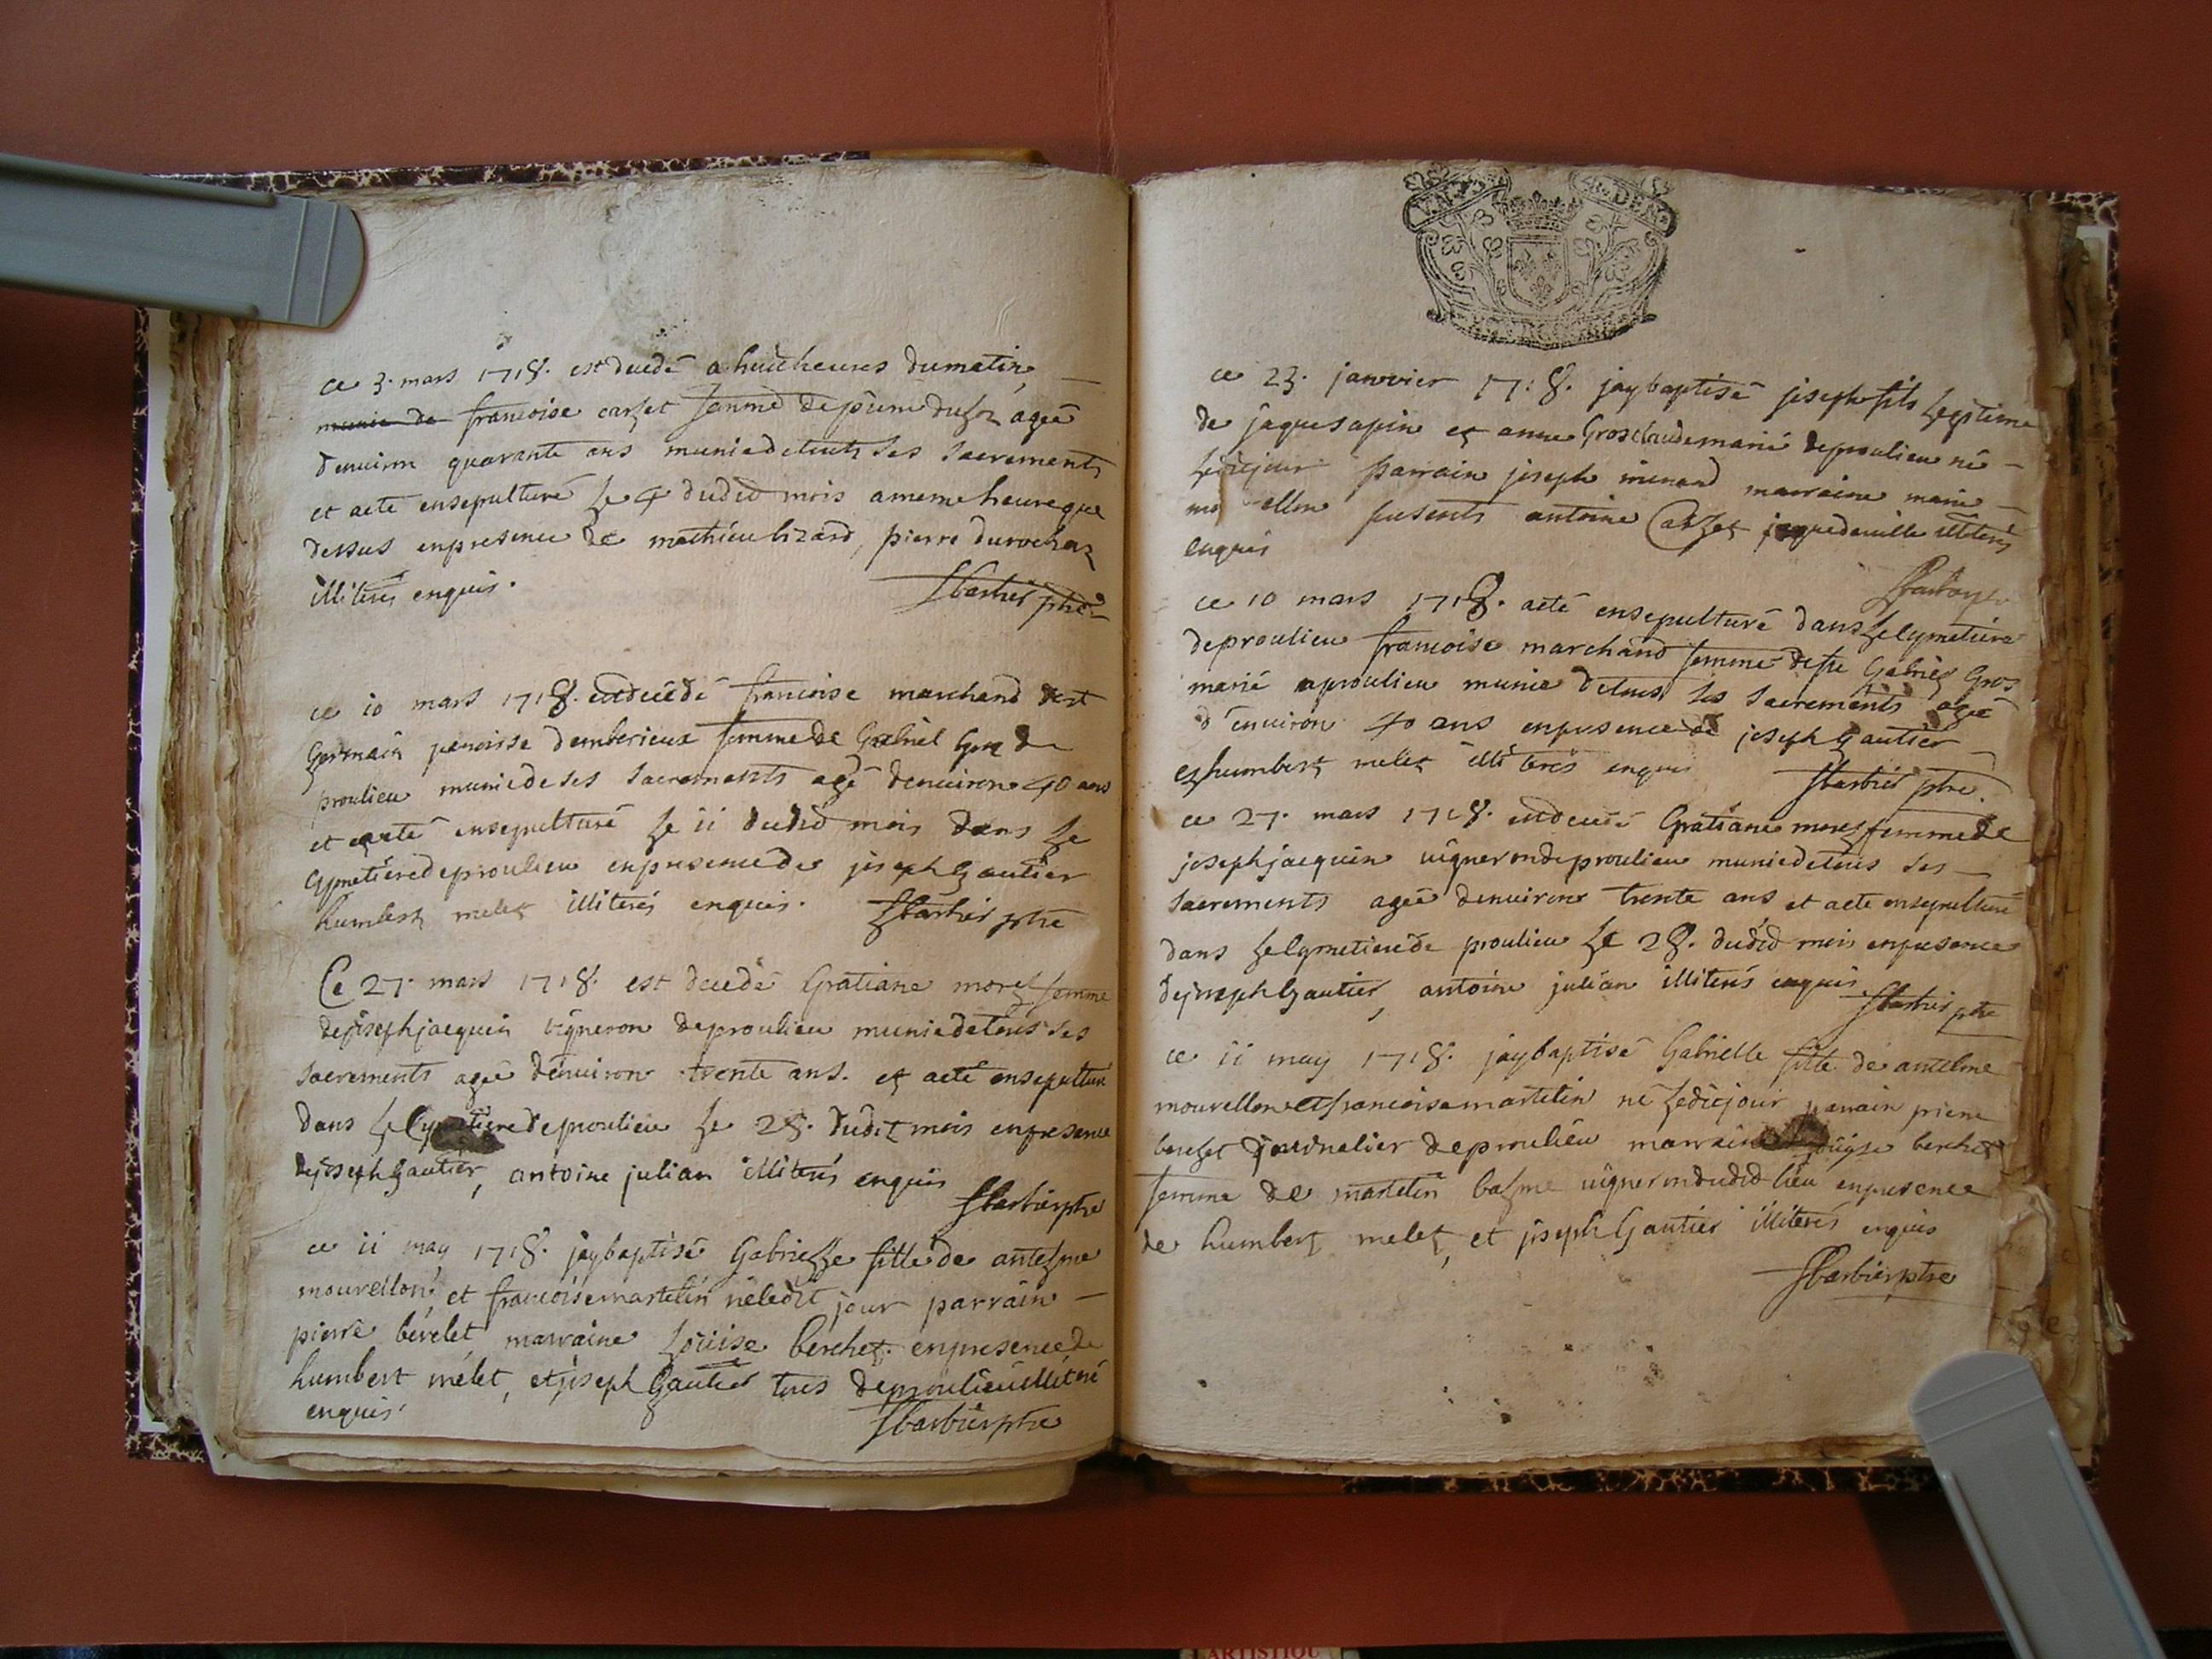 ce 3. mars 1718. est décédé a huictheures dumatin
munie de francoise carlet femme depierre dufor agée
denuiron quarante ans muniedetouts ses sacrements
et aeté ensepulturé le 4 dudid mois amemeheureque
dessus enpresence de mathieu bizard, pierre durochaz
illiterés enquis.
Jbarbier ptre
ce 10 mars 1718. estdécédé francoise marchand de st
Germain paroisse d'emberieux femme de Gabriel Gros de
proulieu muniedeses sacrements agé denuiron 40 ans
et aeté ensepulturé le ii dudid mois dans le
cymetieredeproulieu enpresencede joseph Gautier
humbert melet illiterés enquis. Jbarbier ptre
Ce 27. mars 1718. est décédé Gratiane morel femme
dejosephjacquin vigneron deproulieu muniedetous ses
sacrements ageé denuiron trente ans. et aeté ensepulturé
dans le cymetieredeproulieu le 28. dudit mois enpresence
dejosephGautier, antoine julian illiterés enquis
Jbarbierptre
ce ii may 1718. jaybaptisé Gabrielle fille de antelme
mouvellon, et francoisemartelin néledit jour parrain
pierre bérelet, marraine Loüise berchet. enpresencede
humbert melet, et joseph Gautier tous deproulieuilliteré
enquis.
Jbarbierptre
UN DEN
ce 23. janvier 1718. jaybaptisé joseph fils legitime
de jaquesapin et anne Grosclaudemarié deproulieu né
ledicjour parrain joseph menard marraine marie
mo ellon presents antoine Carlet jaquedeuille illiterés
enquis
ce 10 mars 1718. aeté ensepulturé dans le cymetiere
deproulieu francoise marchand femme de fu Gabriel Gros
marié aproulieu munie detous ses sacrements agée
d'enuiron 40 ans enpresence de joseph Gautier
et humbert melet illiterés enquis Jbarbier ptre.
ce 27. mars 1718. estdécédé Gratiane morel femmede
josephjacquin uigneronde proulieu muniedetous ses
sacrements ageé denuiron trente ans et aeté ensepulturé
dans le cymetierede proulieu le 28. dudid mois enpresence
dejoseph Gautier, antoine julian illiterés enquis
Jbarbier ptre
ce ii may 1718. jaybaptisé Gabrielle fille de antelme
mouvellon etfrancoisemartelin né ledicjour parrain pierre
berelet journalier deproulieu marraine loüise berchet
femme de martelin balme uignerondudid lieu enpresence
de humbert melet, et joseph Gautier illiterés enquis
Jbarbierptre
ARTISTIQU